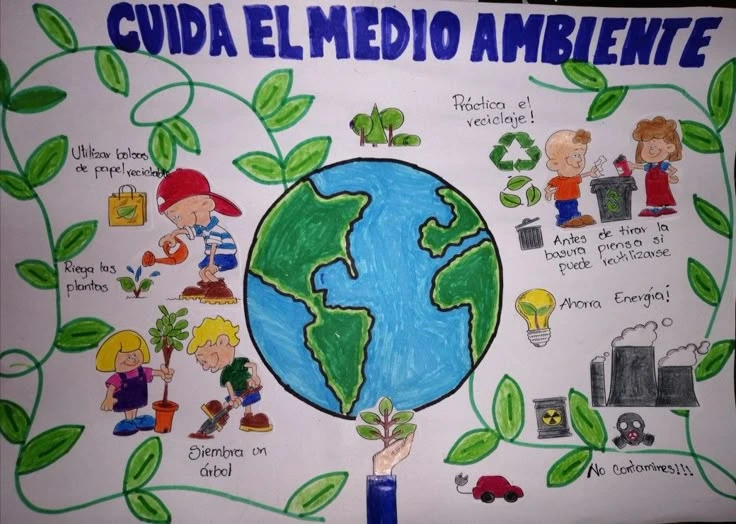 CUIDA EL MEDIO AMBIENTE
Práctica el
reciclaje!
Utilizar bolsas
de papel reciclable
Antes de tirar la
basura piensa si
puede reutilizarse
Riega las
plantas
Ahorra Energía!
Siembra un
árbol
No Contamines!!!